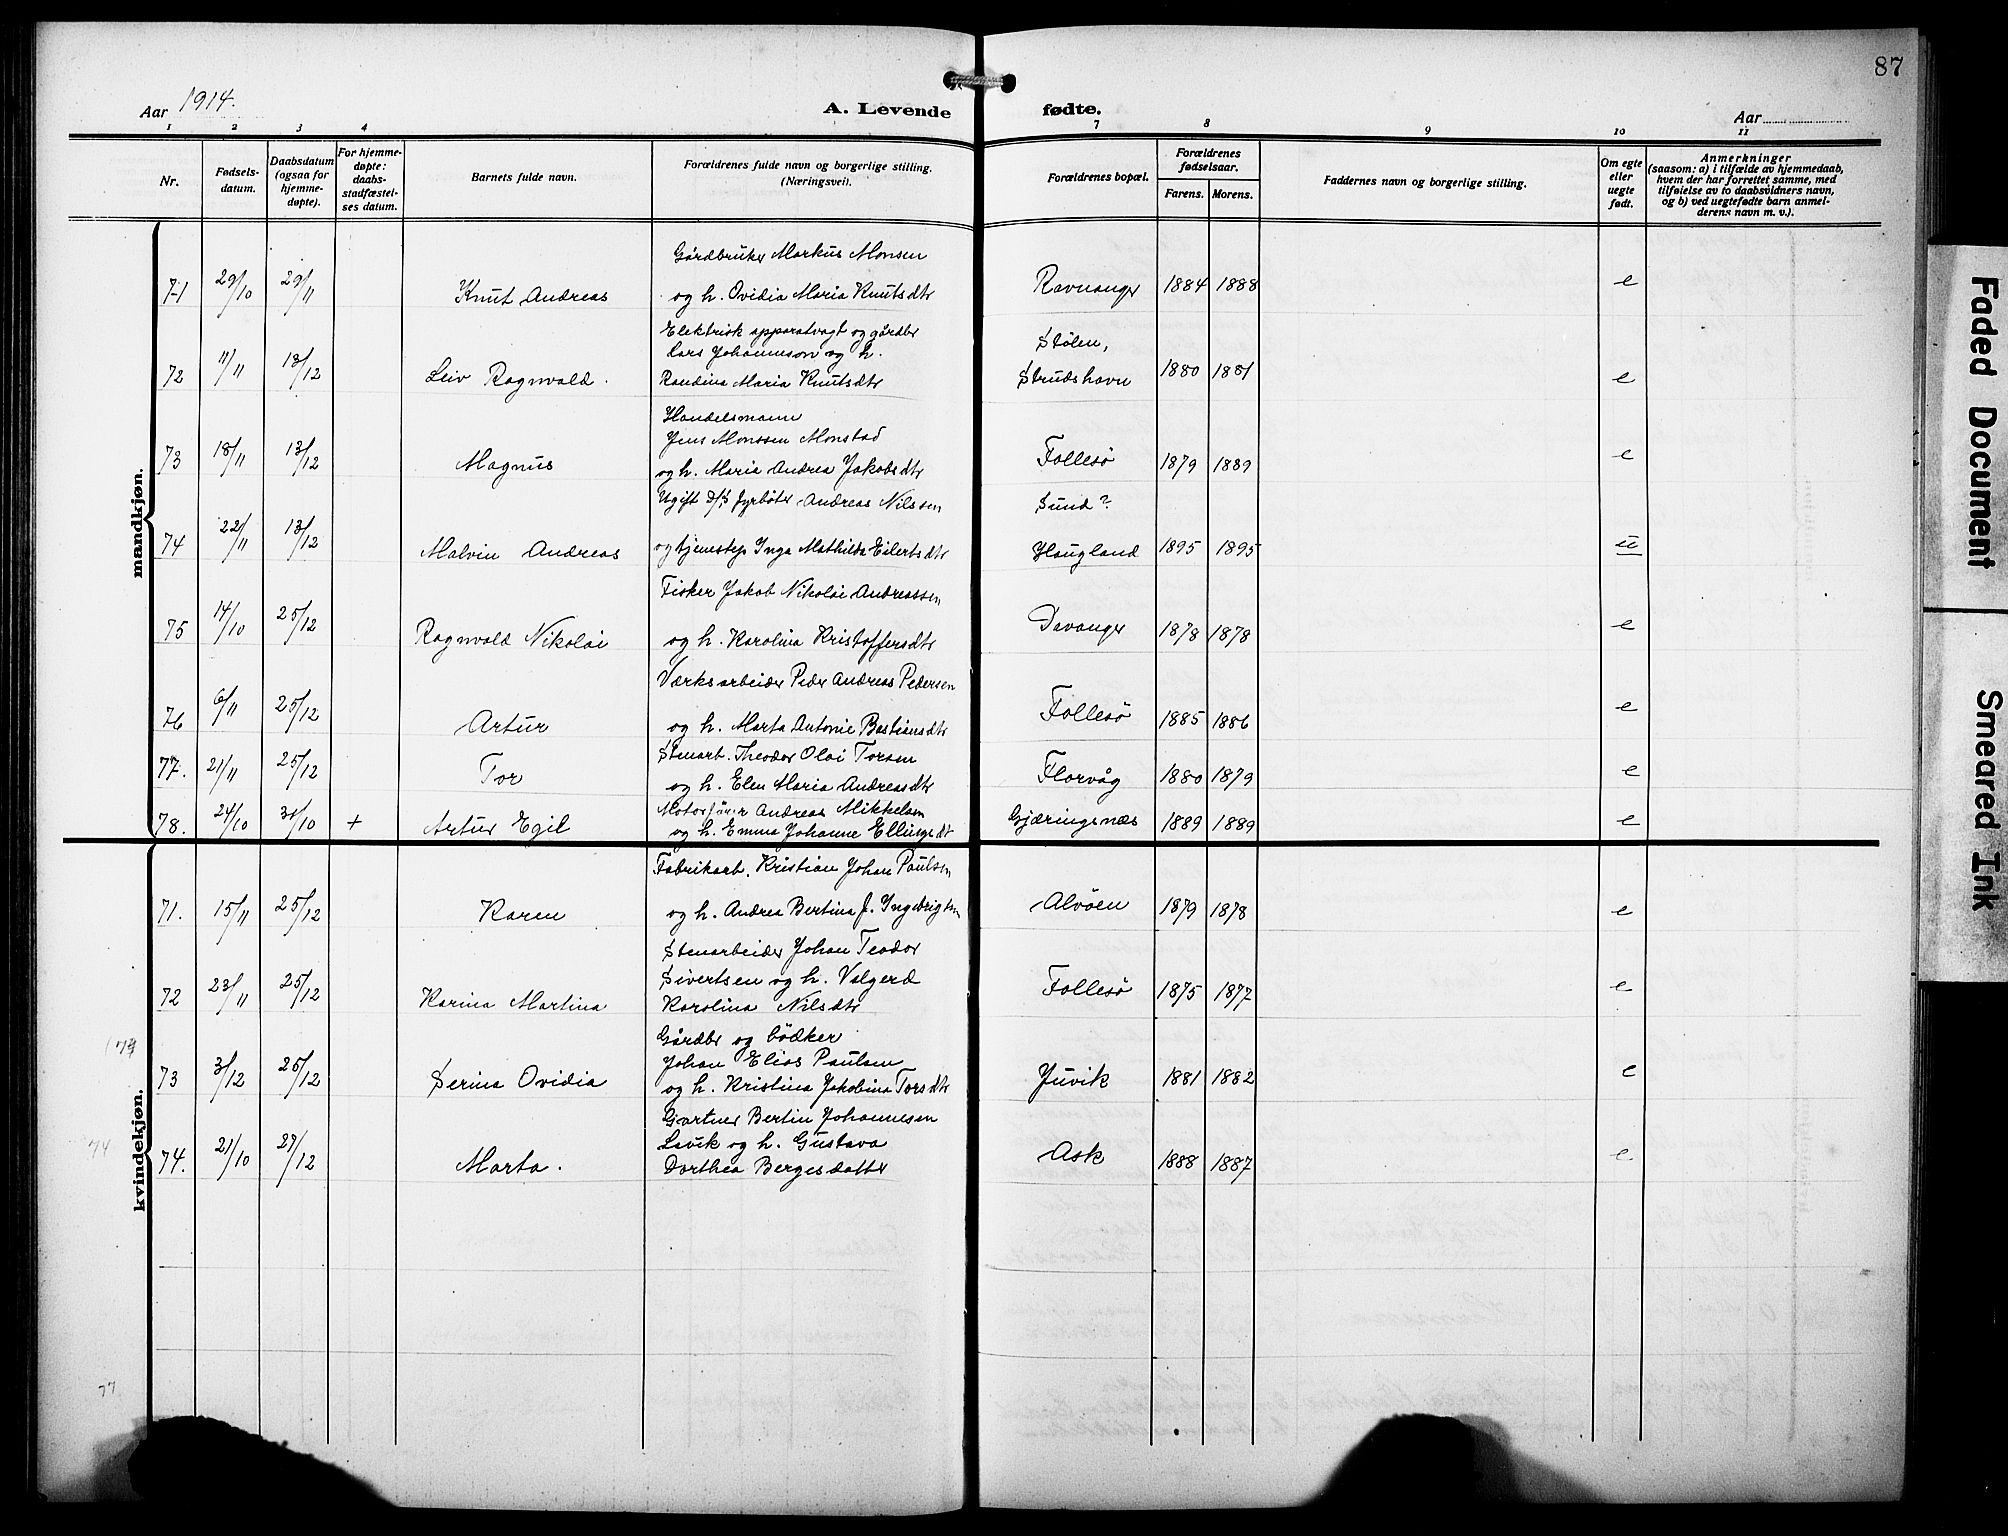 87
Aar 1914.
A. Levende fødte.
Aar
1 2 3 4 7 8 9 10 11
Nr.
Fødsels-
datum.
Daabsdatum
(ogsaa for
hjemme-
døpte).
For hjemme-
døpte:
daabs-
stadfæstel-
ses datum.
Barnets fulde navn.
Forældrenes fulde navn og borgerlige stilling.
(Næringsvei).
Forældrenes bopæl.
Forældrenes
fødselsaar.
Farens. Morens.
Faddernes navn og borgerlige stilling.
Om egte
eller
uegte
født.
Anmerkninger
(saasom: a) i tilfælde av hjemmedaab,
hvem der har forrettet samme, med
tilføielse av to daabsvidners navn,
og b) ved uegtefødte barn anmel-
derens navn m. v.).
mandkjøn.
Gårdbruker Markus Monsen
71 29/10 29/11 Knut Andreas og h. Ovidia Maria Knutsdtr Ravnanger 1884 1888 e
Elektrisk apparatvagt og gårdbr
Lars Johanneson og h. Stølen,
72 11/11 13/12 Leiv Ragnvald. Randina Maria Knutsdtr Strudshavn 1880 1881 e
Handelsmann
Jens Monssen Monstad
73 18/11 13/12 Magnus og h. Maria Andrea Jakobsdtr Follesö 1879 1889 e
Ugift D/S fyrbøter Andreas Nilssen Sund?
74 22/11 13/12 Malvin Andreas og tjenestep Inga Mathilda Eilertsdtr Haugland 1895 1895 u
Fisker Jakob Nikolai Andreassen
75 14/10 25/12 Ragnvald Nikolai og h. Karolina Kristoffersdtr Davanger 1878 1878 e
Værksarbeider Peder Andreas Pedersen
76 6/11 25/12 Artur og h. Marta Antonie Bastiansdtr Follesö 1885 1886 e
Stenarb. Theodor Olai Torsen
77. 21/11 25/12 Tor og h. Elen Maria Andreasdtr Florvåg 1880 1879 e
Motorfører Andreas Mikkelsen
78. 24/10 31/10 + Artur Egil og h. Emma Johanne Ellingsdt Gjæringsnæs 1889 1889 e
kvindekjøn.
Fabrikarb. Kristian Johan Paulsen
71. 15/11 25/12 Karen og h. Andrea Bertina J. Ingebrigtsen Alvøen 1879 1878 e
Stenarbeider Johan Teodor
Sivertsen og h. Valgerd
72 23/11 25/12 Karina Martina Karolina Nilsdtr Follesö 1875 1877 e
Gårdbr og bödker
Johan Elias Paulsen
73 3/12 25/12 Serina Ovidia og h. Kristina Jakobina Torsdtr Juvik 1881 1882 e
Gartner Bertin Johannesen
Lavik og h. Gustava
74 74. 21/10 27/12 Marta. Dorthea Bergesdatter Ask 1888 1887 e.
77
Faded Document
Smeared Ink